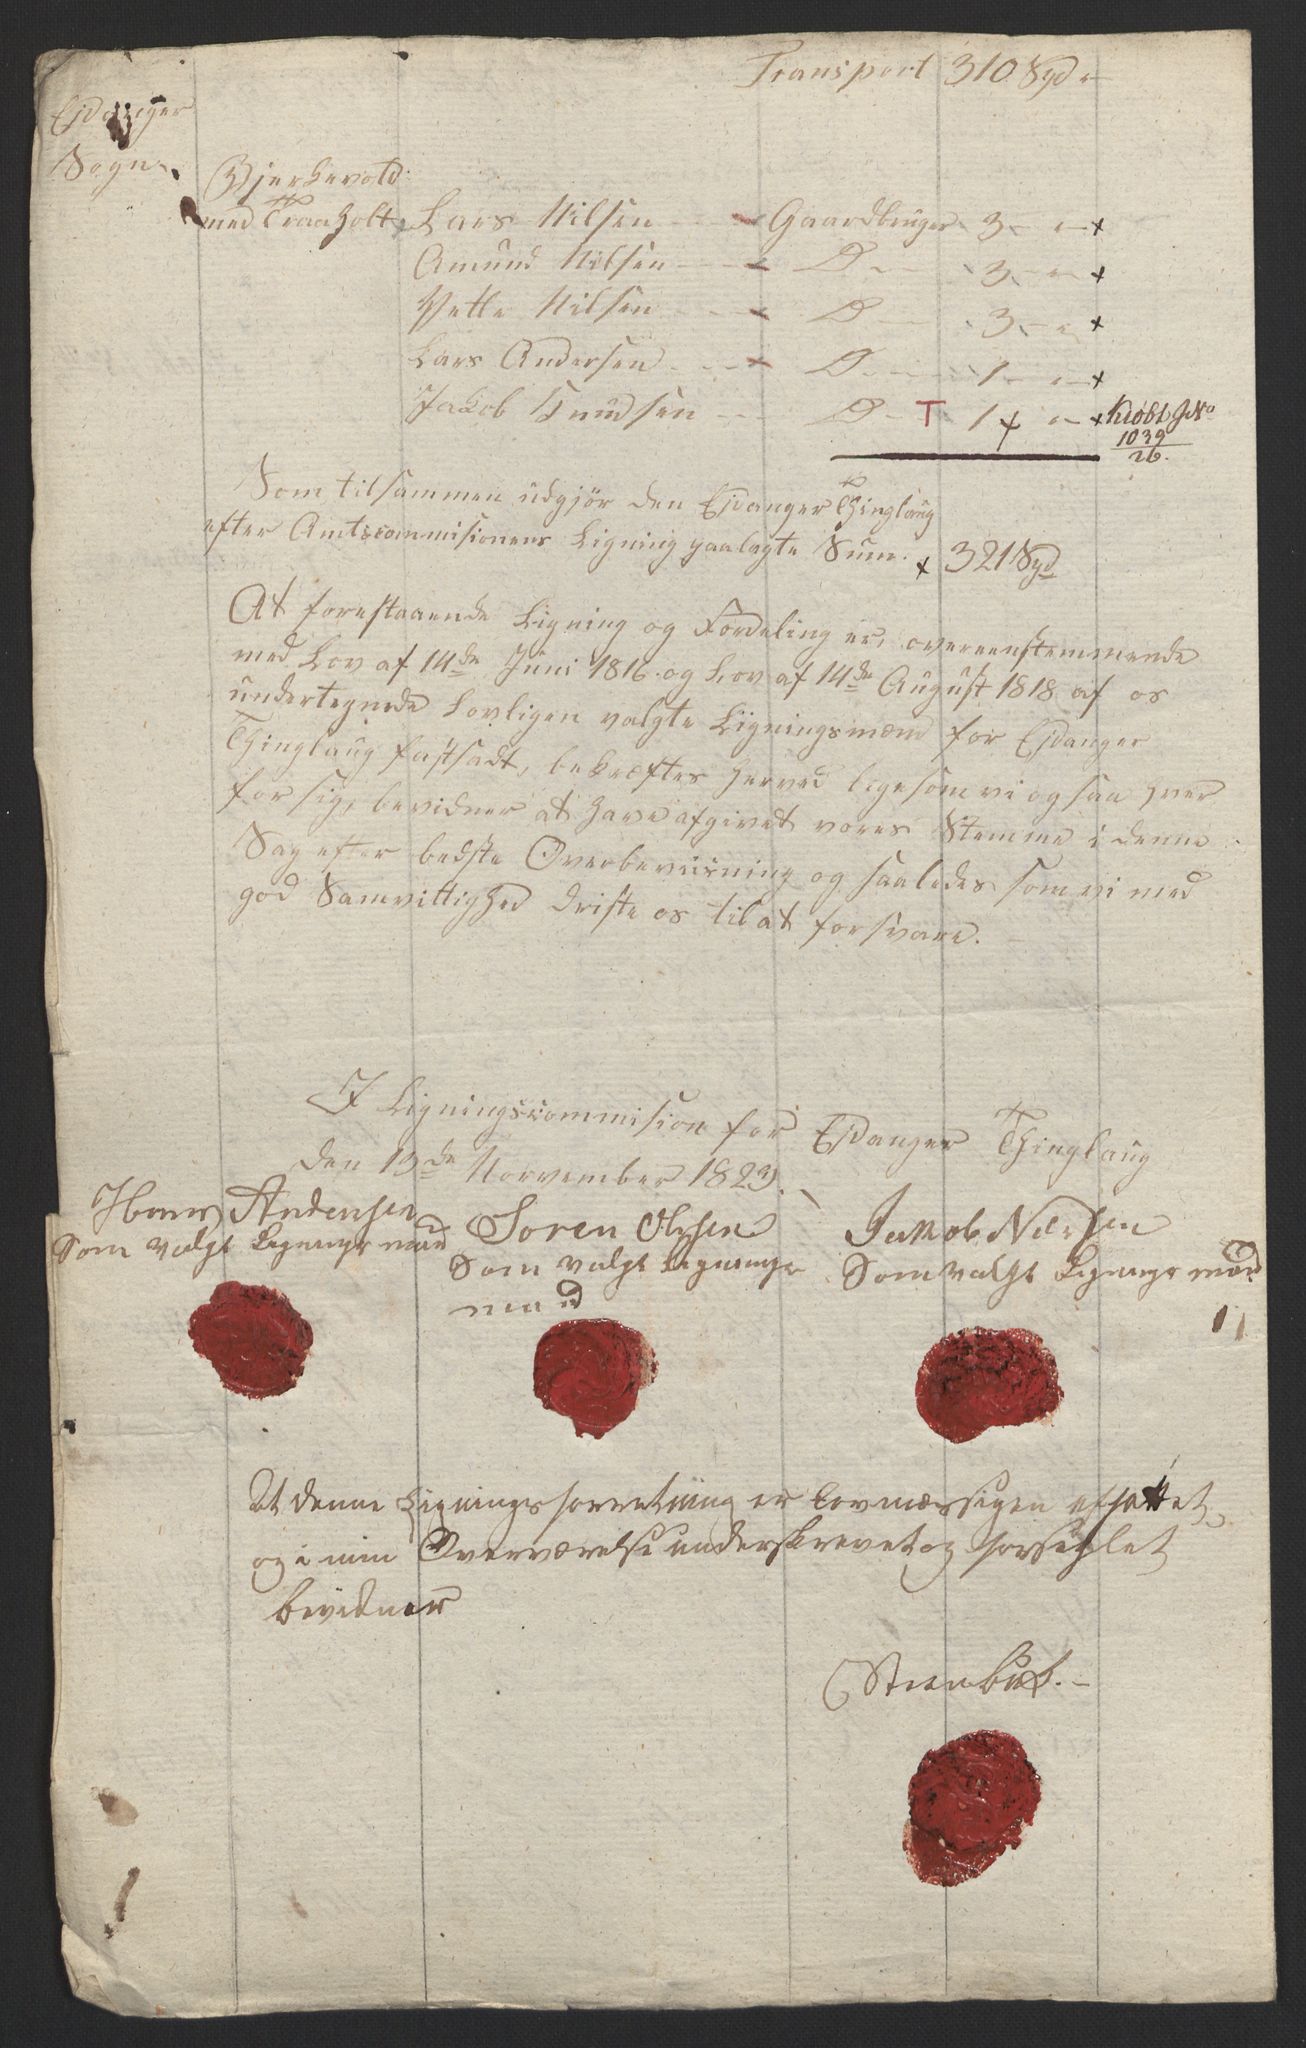 Transport 310 Spd "
Eidanger
Sogn.
Bjerkevold
med Traaholt Lars Nilsen Gaardbruger 3 - " -
Amund Nilsen D 3 - " -
Vetle Nilsen D 3 - "
Lars Andersen D 1 - " -
Jakob Knudsen D T 1 " - Kiøbt J No
1039
26.
Som tilsammen udgjör den Eidanger Thinglaug
efter Amtscommisionens Ligning paalagte Sum. 321 Spd
At forestaaende Ligning og Fordeling er, overeenstemmende
med Lov af 14de Juni 1816 og Lov af 14de August 1818 af os
undertegnede Lovligen valgte Ligningsmænd for Eidanger
Thinglaug fastsadt, bekræftes herved ligesom vi ogsaa hver
for sig, bevidner at have afgivet vores Stemme i denne
Sag efter bedste Overbeviisning og saaledes som vi med
god Samvittighed driste os til at forsvare.
I Ligningscommision for Eidanger Thinglaug
den 13de November 1823.
Hans Andersen Soren Olsen Jakob Nielsen
Som valgt Legnings mand Som valgt Legnings Som valgt Legnings mand
mand
At denne Ligningsforretning er lovmæssigen afsattet
og i min Overværelse underskrevet og forseglet
bevidner
Steenbuk.